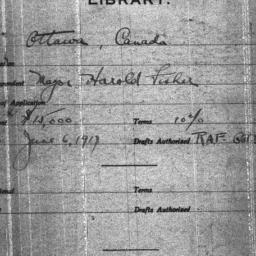 LIBRARY.
Ottawa, Canada
Mayor Harold Fisher
of Application
$15,000 Terms 10%
June 6, 1917 Drafts Authorized RAF
Terms
Drafts Authorized